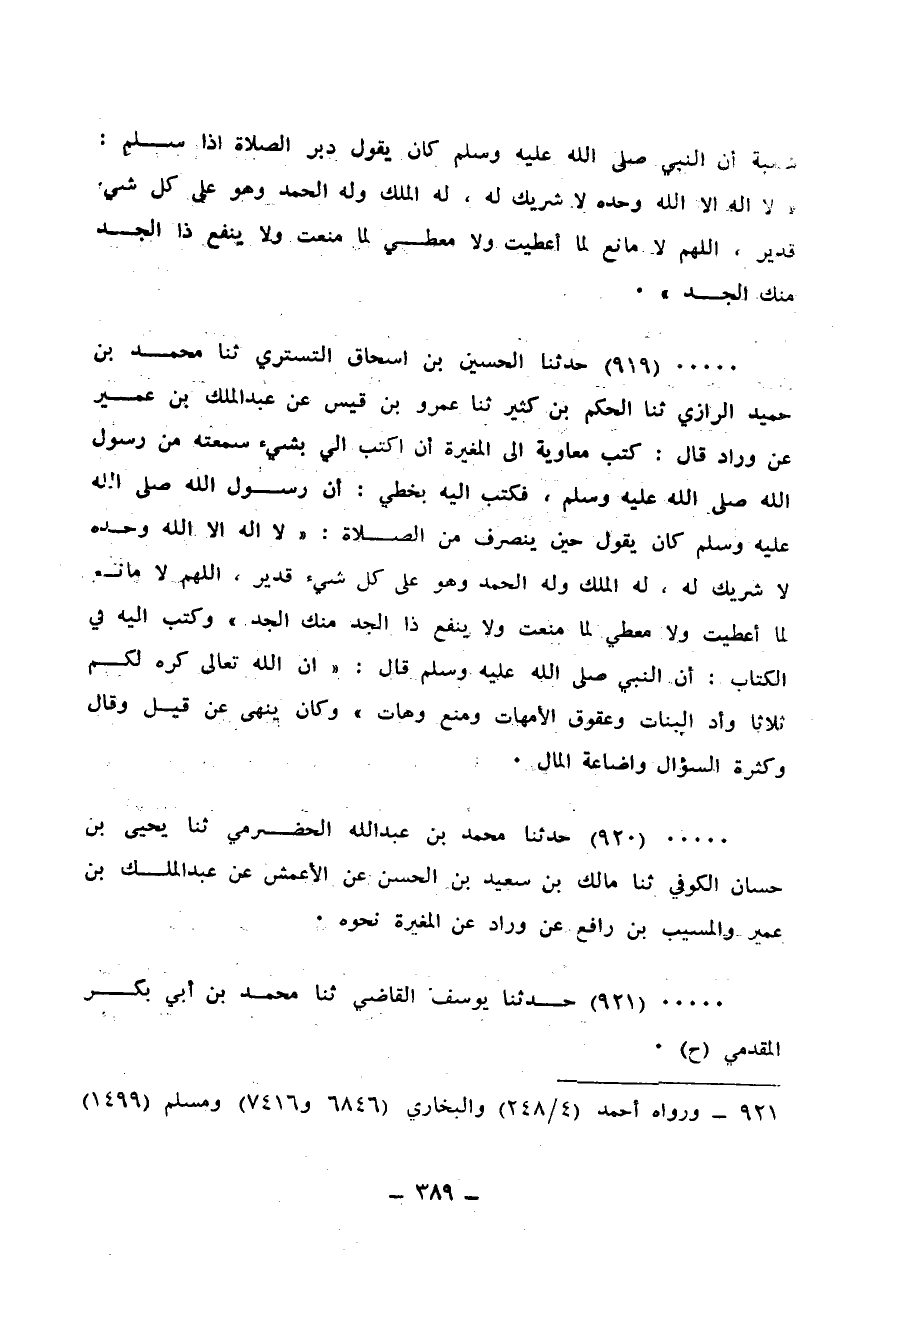 شعبة أن النبي صلى الله عليه وسلم كان يقول دبر الصلاة اذا ســـلم :
« لا اله الا الله وحده لا شريك له ، له الملك وله الحمد وهو على كل شيء
قدير ، اللهم لا مانع لما أعطيت ولا معطـــي لما منعت ولا ينفع ذا الجـــد
منك الجـــد » ·
····· (٩١٩) حدثنا الحسين بن اسحاق التستري ثنا محمـــد بن
حميد الرازي ثنا الحكم بن كثير ثنا عمرو بن قيس عن عبدالملك بن عمـــير
عن وراد قال : كتب معاوية الى المغيرة أن اكتب الي بشيء سمعته من رسول
الله صلى الله عليه وسلم ، فكتب اليه بخطي : أن رســـول الله صلى الله
عليه وسلم كان يقول حين ينصرف من الصـــلاة : « لا اله الا الله وحـــده
لا شريك له ، له الملك وله الحمد وهو على كل شيء قدير ، اللهم لا مانـــع
لما أعطيت ولا معطي لما منعت ولا ينفع ذا الجد منك الجد » وكتب اليه في
الكتاب : أن النبي صلى الله عليه وسلم قال : « ان الله تعالى كره لكـــم
ثلاثا وأد البنات وعقوق الأمهات ومنع وهات » وكان ينهى عن قيـــل وقال
وكثرة السؤال واضاعة المال ·
····· (٩٢٠) حدثنا محمد بن عبدالله الحضـــرمي ثنا يحيى بن
حسان الكوفي ثنا مالك بن سعيد بن الحسن عن الأعمش عن عبدالملـــك بن
عمير والمسيب بن رافع عن وراد عن المغيرة نحوه ·
····· (٩٢١) حـــدثنا يوسف القاضي ثنا محمـــد بن أبي بكـــر
المقدمي (ح) ·
٩٢١ – ورواه أحمد (٢٤٨/٤) والبخاري (٦٨٤٦ و٧٤١٦) ومسلم (١٤٩٩)
– ٣٨٩ –